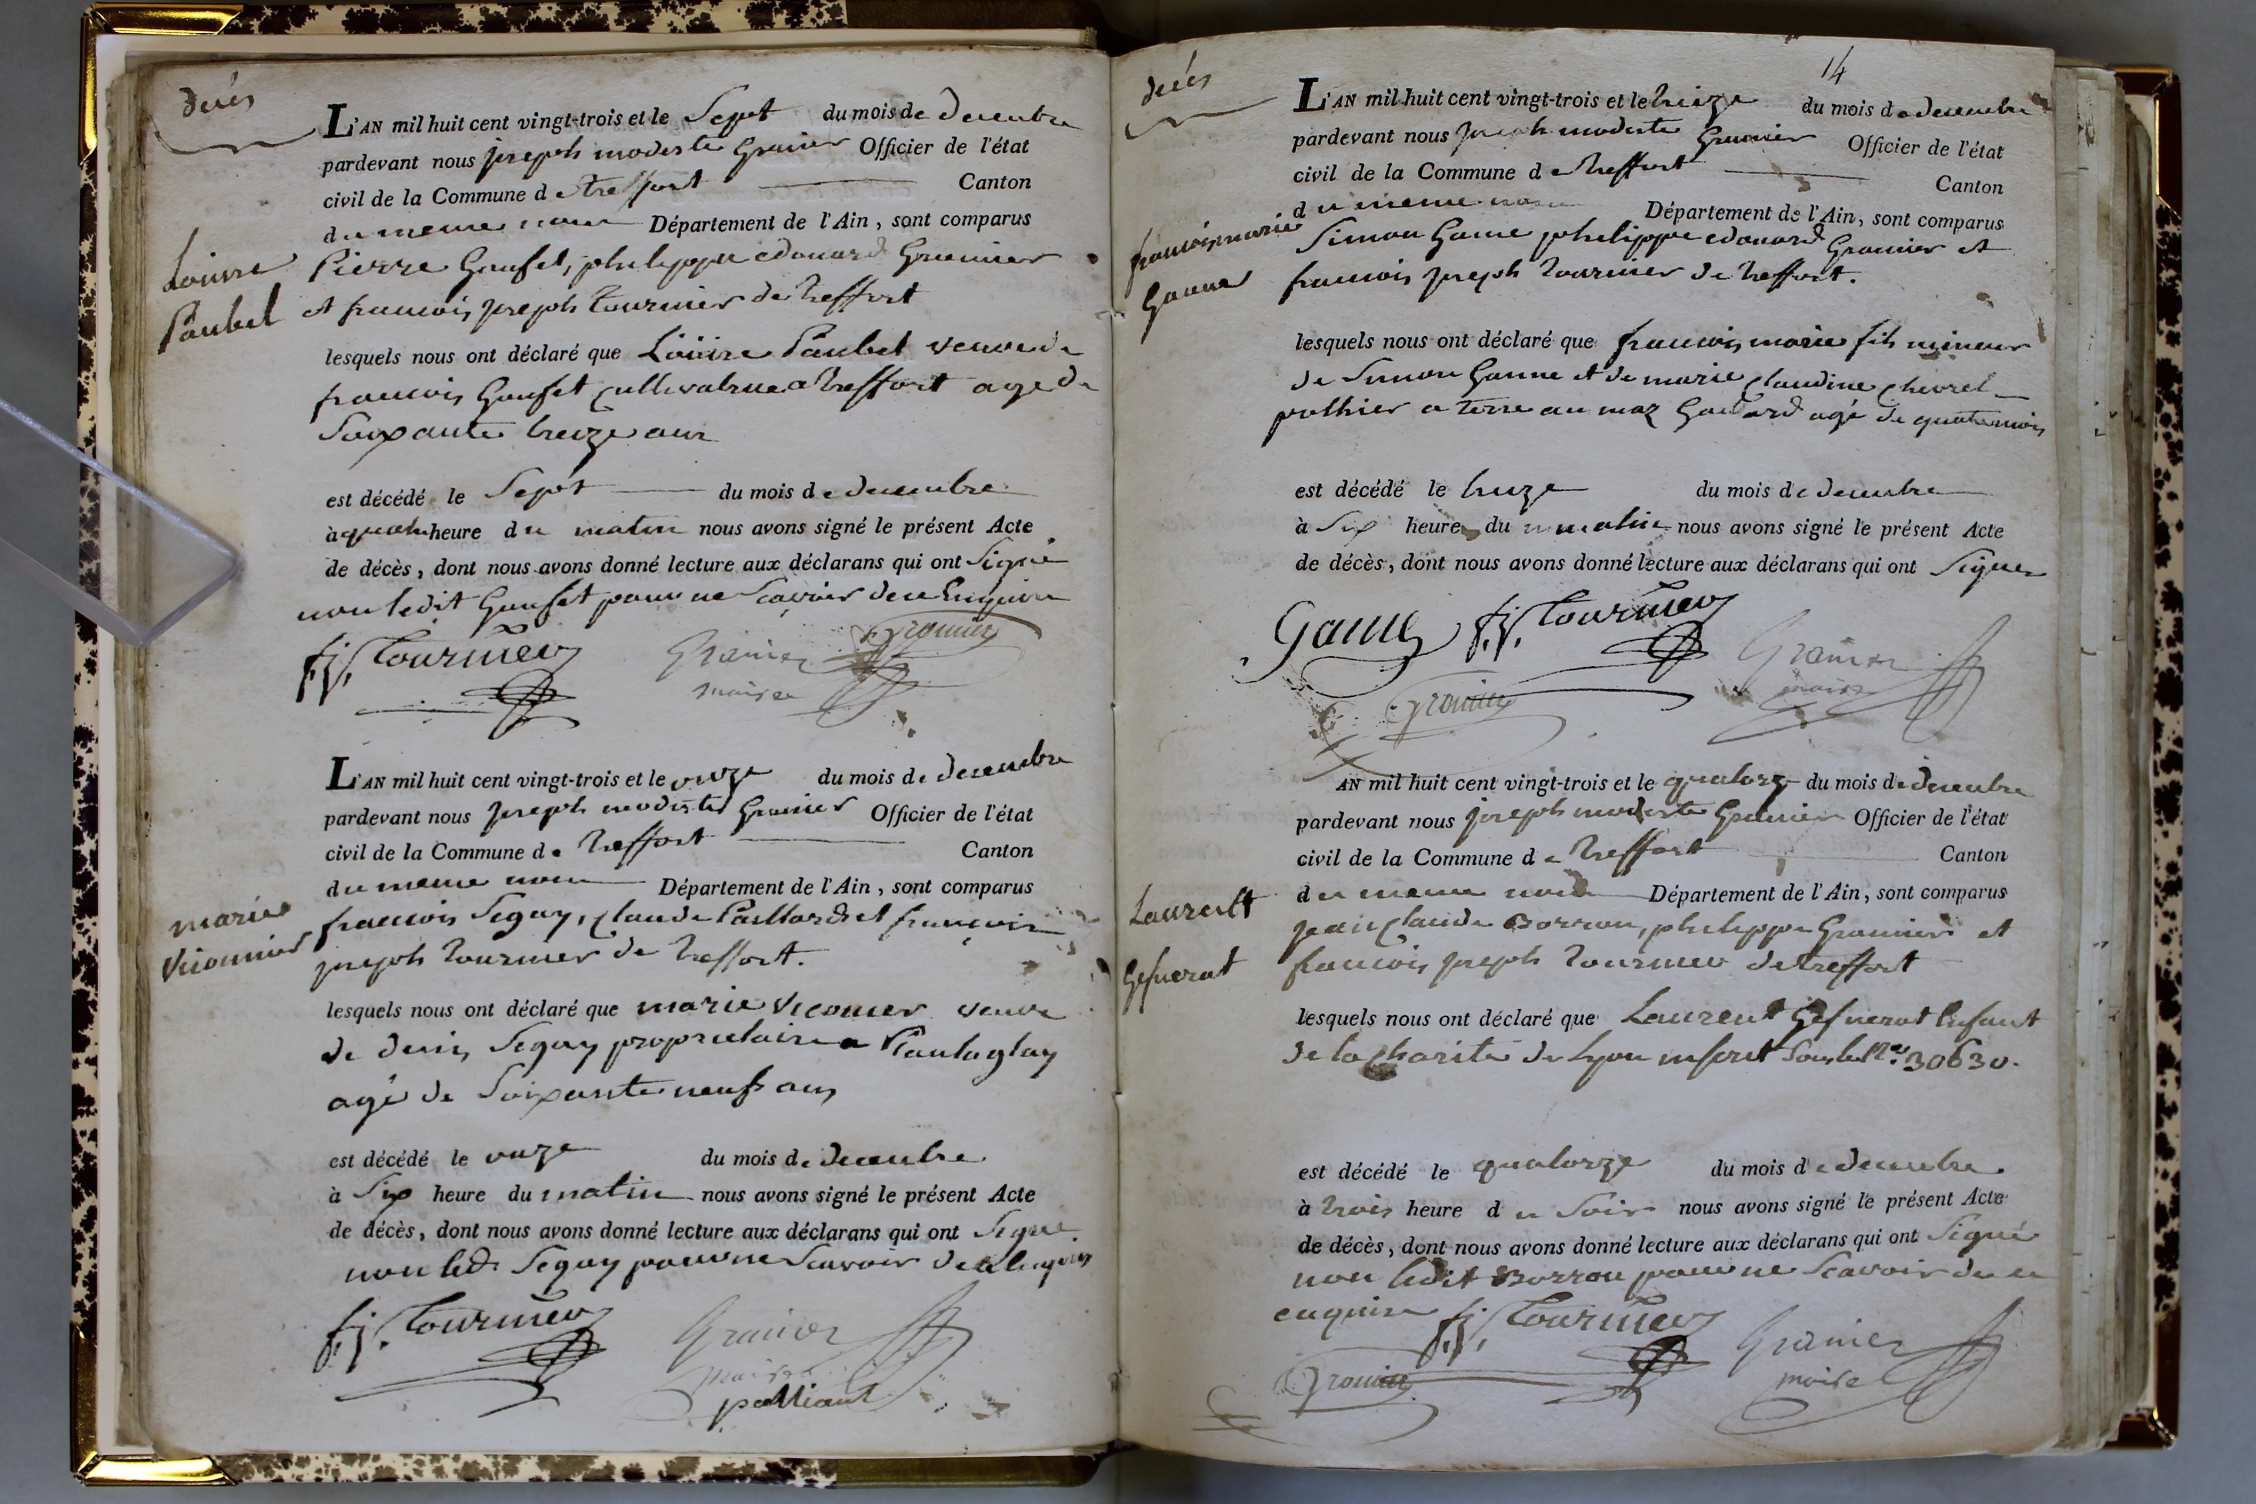 décès
L'AN mil huit cent vingt-trois et le Sept du mois de decembre
pardevant nous joseph modeste Granier Officier de l'état
civil de la Commune de treffort Canton
du meme nom Département de l'Ain, sont comparus
Louise
Paubel
Pierre Gonfet, philippe edouard Granier
et francois joseph tournier de treffort
lesquels nous ont déclaré que Louise Paubel veuve de
francois Gonfet cultivatrice a treffort age de
Soixante treize ans
est décédé le Sept du mois de decembre
à quatre heure du matin nous avons signé le présent Acte
de décès, dont nous avons donné lecture aux déclarans qui ont Signé
non ledit Gonfet pour ne Scavoir de ce Enquis
fj. Tournier Granier
maire
L'AN mil huit cent vingt-trois et le onze du mois de decembre
pardevant nous joseph modeste Granier Officier de l'état
civil de la Commune de treffort Canton
du meme nom Département de l'Ain, sont comparus
marie
Viconnier
francois Seguy, Claude Paillard et francois
joseph tournier de treffort.
lesquels nous ont déclaré que marie Viconier veuve
de denis Seguy propriétaire a
agé de Soixante neuf ans
est décédé le onze du mois de decembre
à Six heure du matin nous avons signé le présent Acte
de décès, dont nous avons donné lecture aux déclarans qui ont Signé
non led. Seguy pour ne Scavoir de ce
fj. Tournier Granier
maire
14
décès
L'AN mil huit cent vingt-trois et le treize du mois de decembre
pardevant nous joseph modeste Granier Officier de l'état
civil de la Commune de treffort Canton
du meme nom Département de l'Ain, sont comparus
francois marie
Ganne
Simon Ganne philippe edouard Granier et
francois joseph tournier de treffort.
lesquels nous ont déclaré que francois marie fils mineur
de Simon Ganne et de marie Claudine Chevrel
pothier a terre au maz agé de quatre mois
est décédé le treize du mois de decembre
à Six heure du matin nous avons signé le présent Acte
de décès, dont nous avons donné lecture aux déclarans qui ont Signer
Ganne fj. Tournier Granier
maire
AN mil huit cent vingt-trois et le quatorze du mois de decembre
pardevant nous joseph modeste Granier Officier de l'état
civil de la Commune de treffort Canton
du meme nom Département de l'Ain, sont comparus
Laurent
Gefnerat
jean Claude Borron, philippe Granier et
francois joseph tournier de treffort
lesquels nous ont déclaré que Laurent Gefnerat Enfant
de la Charité de Lyon inscrit Sous le N° 30630.
est décédé le quatorze du mois de decembre
à trois heure du Soir nous avons signé le présent Acte
de décès, dont nous avons donné lecture aux déclarans qui ont Signé
non ledit Borron pour ne Scavoir de ce
enquis fj. Tournier Granier
maire